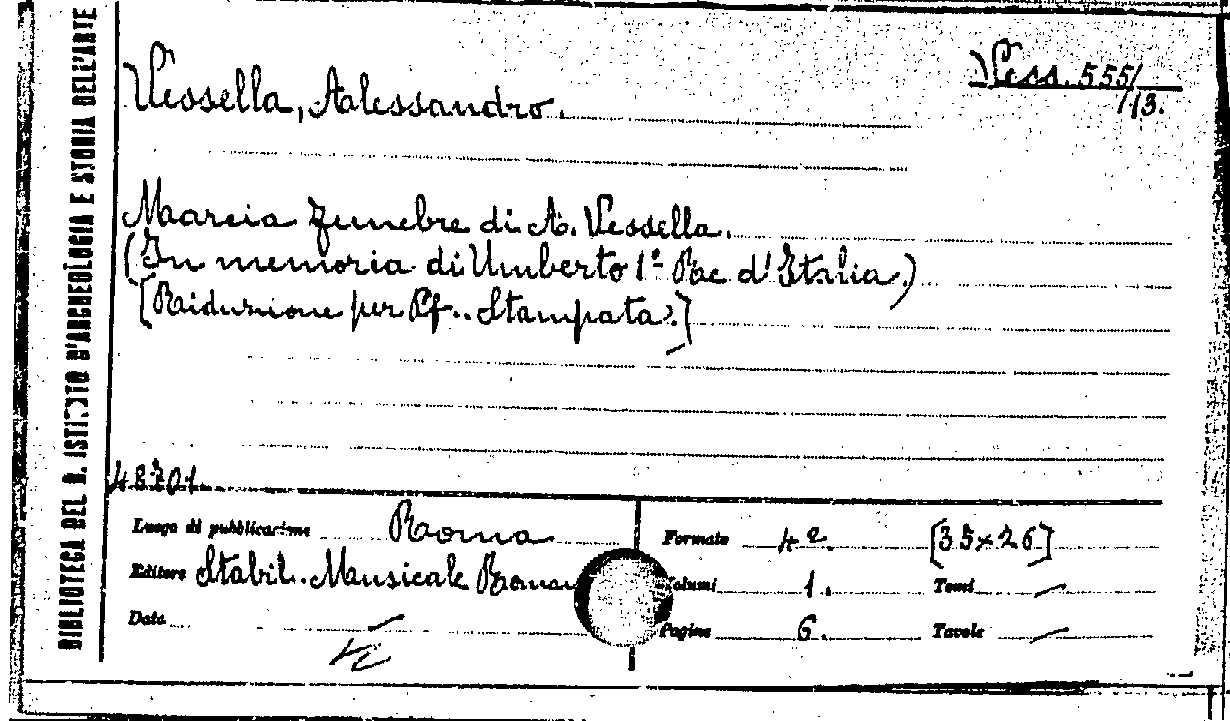 BIBLIOTECA DEL R. ISTITUTO D'ARCHEOLOGIA E STORIA DELL'ARTE
Vessella, Alessandro.
Vess. 555/13.
Marcia funebre di A. Vessella.
(In memoria di Umberto 1º Re d'Italia.)
[Riduzione per Pf.. Stampata.]
48301
Luogo di pubblicazione Roma
Formato 4º. [35x26]
Editore Stabil. Musicale Roman
Volumi 1. Tomi —
Data —
Pagine 6. Tavole —